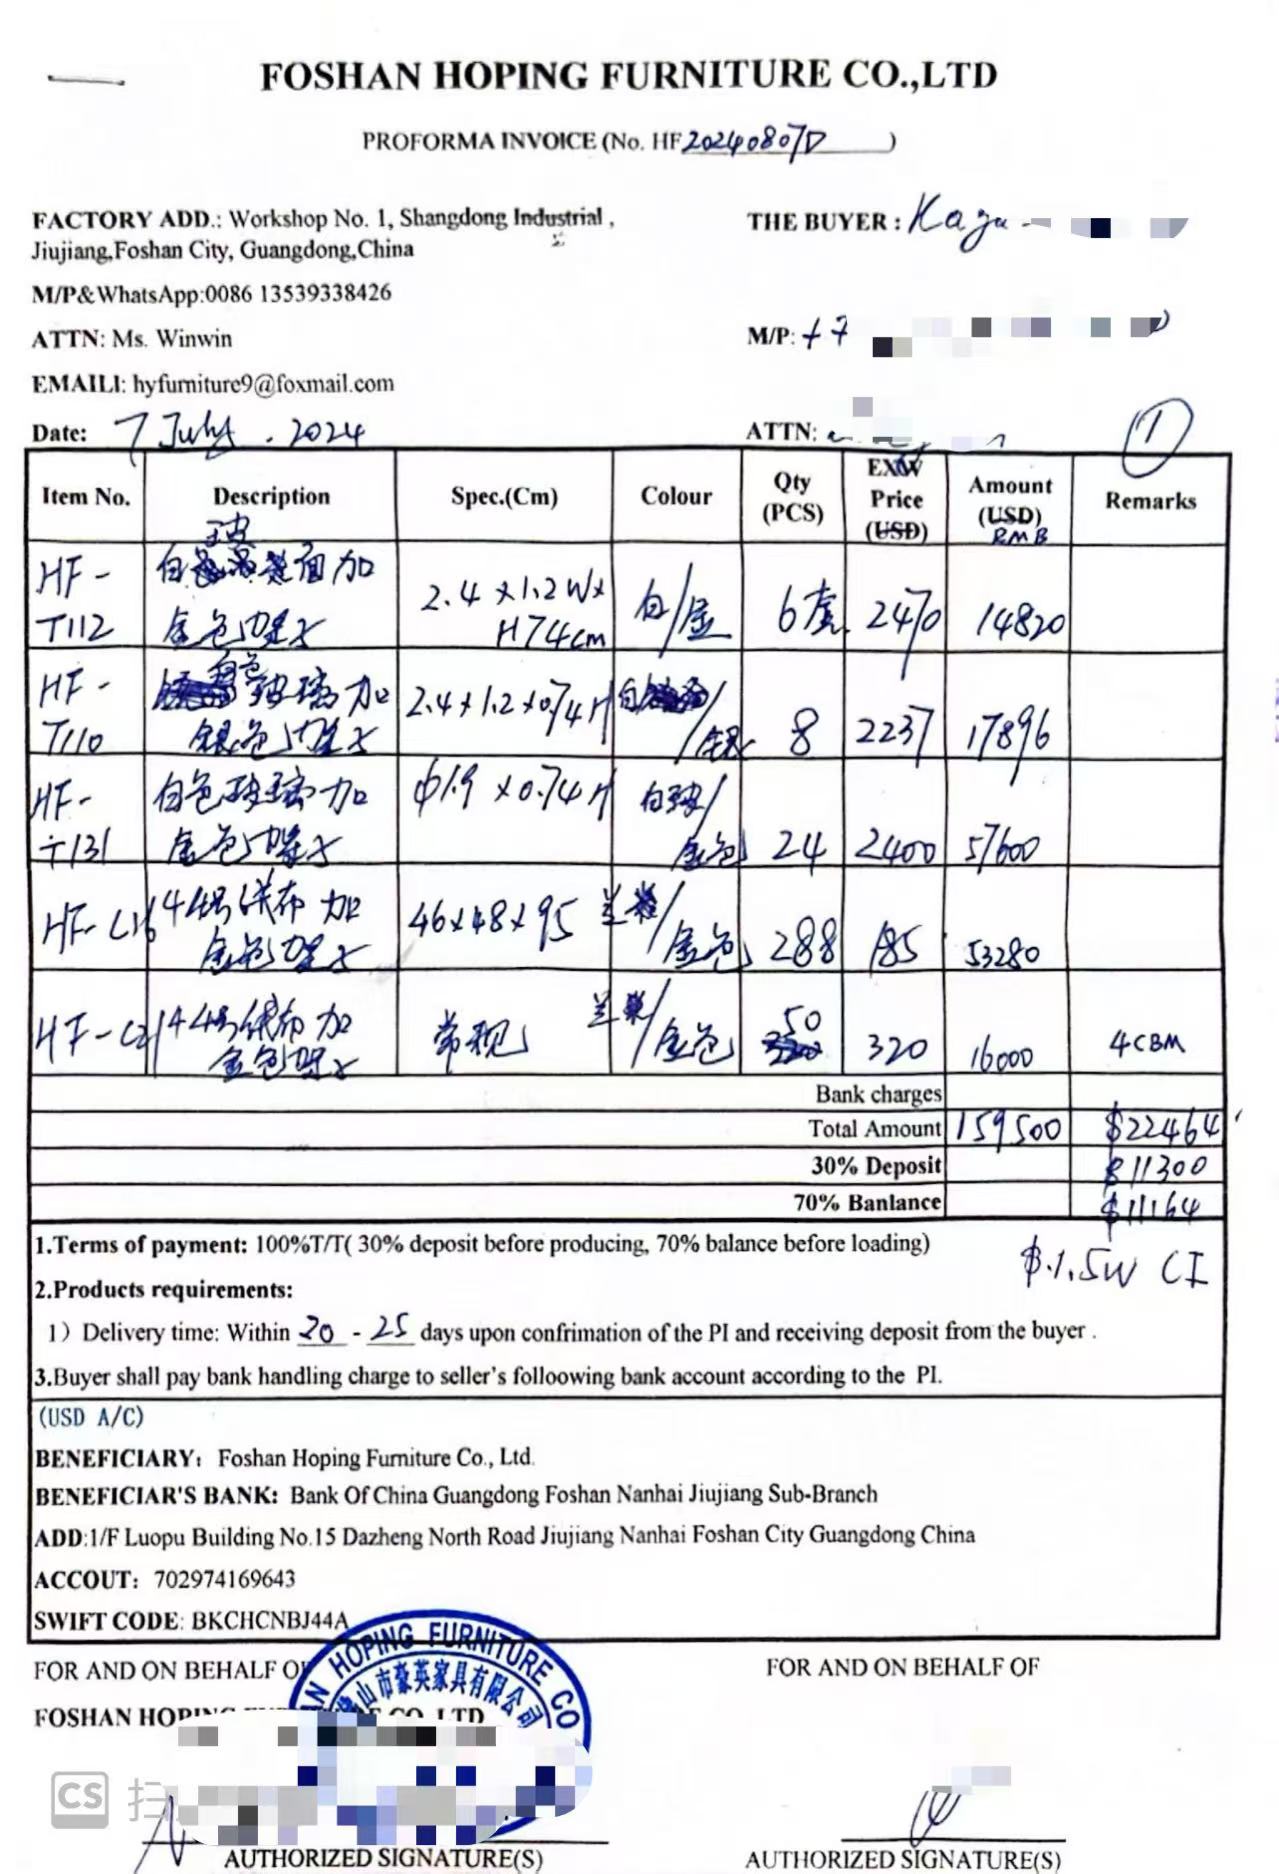 FOSHAN HOPING FURNITURE CO.,LTD
PROFORMA INVOICE (No. HF20240807D)
FACTORY ADD.: Workshop No. 1, Shangdong Industrial ,
Jiujiang,Foshan City, Guangdong,China
THE BUYER : Kazu-
M/P&WhatsApp:0086 13539338426
ATTN: Ms. Winwin
M/P: +7
EMAILI: hyfurniture9@foxmail.com
Date: 7 July . 2024
ATTN:
①
Item No. Description Spec.(Cm) Colour Qty (PCS) EXW Price (USD) Amount (USD) RMB Remarks
HF-T112 加金色架子 2.4×1.2W×H74cm 白/金 6套 2470 14820
HF-T110 白色玻璃加银色架子 2.4×1.2×0.74H 白/银 8 2237 17896
HF-T131 白色玻璃加金色架子 φ1.9×0.74H 白玻/金色 24 2400 57600
HF-C16 44号绒布加金色架子 46×48×95 /金色 288 185 53280
HF-C21 44号绒布加金色架子 常规 /金色 50 320 16000 4CBM
Bank charges
Total Amount 159500 $22464
30% Deposit $11300
70% Banlance $11164
1.Terms of payment: 100%T/T( 30% deposit before producing, 70% balance before loading)
$1.5W CI
2.Products requirements:
1）Delivery time: Within 20 - 25 days upon confrimation of the PI and receiving deposit from the buyer .
3.Buyer shall pay bank handling charge to seller's folloowing bank account according to the PI.
(USD A/C)
BENEFICIARY: Foshan Hoping Furniture Co., Ltd.
BENEFICIAR'S BANK: Bank Of China Guangdong Foshan Nanhai Jiujiang Sub-Branch
ADD:1/F Luopu Building No.15 Dazheng North Road Jiujiang Nanhai Foshan City Guangdong China
ACCOUT: 702974169643
SWIFT CODE: BKCHCNBJ44A
HOPING FURNITURE CO
山市豪英家具有限公司
FOR AND ON BEHALF OF
FOR AND ON BEHALF OF
FOSHAN HOPING CO.,LTD
CS 扫
AUTHORIZED SIGNATURE(S)
AUTHORIZED SIGNATURE(S)